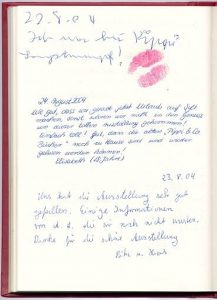 22.8.04
Ich war bei "Pippi
Langstrumpf"!
24. August 2004
Wie gut, dass wir gerade jetzt Urlaub auf Sylt
machen, sonst wären wir nicht in den Genuss
dieser tollen Ausstellung gekommen!
Einfach toll! gut, dass die alten "Pippi & Co
Bücher" noch zu Hause sind und wieder
gelesen werden können!
Elisabeth
23.8.04
Uns hat die Ausstellung sehr gut
gefallen. Einige Informationen
von d. die wir noch nicht wussten.
Danke für die schöne Ausstellung